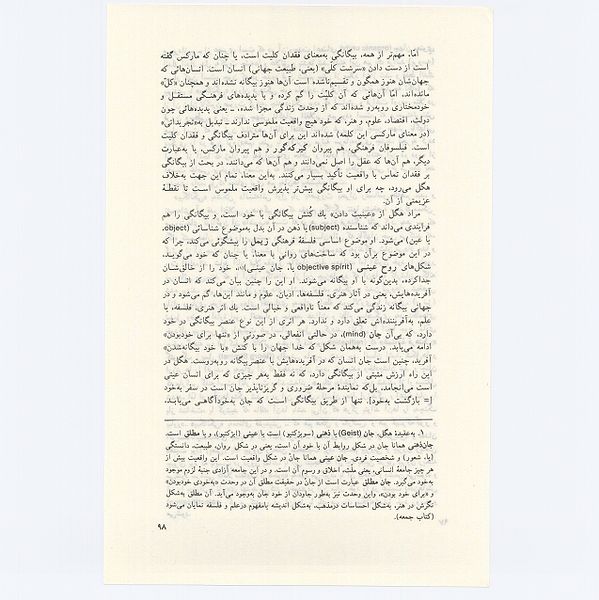 امّا، مهم‌تر از همه، بیگانگی به‌معنای فقدان کلیت است، یا چنان که مارکس گفته
است از دست دادن «سرشت کلی» (یعنی، طبیعت جهانی) انسان است. انسان‌هائی که
جهان‌شان هنوز همگون و تقسیم‌ناشده است آن‌ها هنوز بیگانه نشده‌اند و همچنان «کل»
مانده‌اند، امّا آن‌هائی که آن کلیّت را گم کرده و با پدیده‌های فرهنگی مستقل و
خودمختاری روبه‌رو شده‌اند که از وحدت زندگی مجزا شده، ـ یعنی پدیده‌هائی چون
دولت، اقتصاد، علوم، و هنر، که خود هیچ واقعیت ملموسی ندارند ـ تبدیل به «تجریداتی»
(در معنای مارکسی این کلمه) شده‌اند این برای آن‌ها مترادف بیگانگی و فقدان کلیت
است. فیلسوفان فرهنگی، هم پیروان کیرکه‌گور و هم پیروان مارکس، یا به‌عبارت
دیگر، هم آن‌ها که عقل را اصل نمی‌دانند و هم آن‌ها که می‌دانند، در بحث از بیگانگی
بر فقدان تماس با واقعیت تأکید بسیار می‌کنند. به‌این معنا، تمام این جهت به‌خلاف
هگل می‌رود، چه برای او بیگانگی بیش‌تر پذیرش واقعیت ملموس است تا نقطهٔ
عزیمتی از آن.
مراد هگل از «عینیت دادن» یك کُنش بیگانگی با خود است، و بیگانگی را هم
فرایندی می‌داند که شناسنده (subject) یا ذهن در آن بدل به‌موضوع شناسائی (object،
یا عین) می‌شود. او موضوع اساسی فلسفهٔ فرهنگی زیمل را پیشگوئی می‌کند، چرا که
در این موضوع برآن بود که ساخت‌های روانی یا معنا، یا چنان که خود می‌گوید،
شکل‌های روح عینی (objective spirit یا، جان عینی)۱، خود را از خالق‌شان
جداکرده، بدین‌گونه با او بیگانه می‌شوند. او این را چنین بیان می‌کند که انسان در
آفریده‌هایش، یعنی در آثار هنری، فلسفه‌ها، ادیان، علوم و مانند این‌ها، گم می‌شود و در
جهانی بیگانه زندگی می‌کند که معناً ناواقعی و خیالی است. یك اثر هنری، فلسفه، یا
علم، به‌آفریننده‌اش تعلق دارد و ندارد. هر اثری از این نوع عنصر بیگانگی در خود
دارد، که بی‌آن جان (mind)، در حالتی انفعالی، در صورتی از «تنها برای خودبودن»
ادامه می‌یابد. درست به‌همان شکل که خدا جهان را با کنش «با خود بیگانه‌شدن»
آفرید، چنین است جان انسان که در آفریده‌هایش با عنصربیگانه روبه‌روست. هگل در
این راه ارزش مثبتی از بیگانگی دارد، که نه فقط به‌هر چیزی که برای انسان عینی
است می‌انجامد، بل‌که نمایندهٔ مرحلهٔ ضروری و گریزناپذیر جان است در سفر به‌خود
[= بازگشت به‌خود]. تنها از طریق بیگانگی است که جان به‌خودآگاهی می‌یابد،
۱. به‌عقیدهٔ هگل، جان (Geist) یا ذهنی (سوبژکتیو) است یا عینی (ابژکتیو)، و یا مطلق است.
جان‌ذهنی همانا جان در شکل روابط آن با خود آن است، یعنی در شکل روان، طبیعت، دانستگی
(یا، شعور) و شخصیت فردی. جان عینی همانا جان در شکل واقعیت است. این واقعیت بیش از
هر چیز جامعهٔ انسانی، یعنی ملّت، اخلاق و رسوم آن است. و در این جامعه آزادی جنبهٔ لزوم موجود
به‌خود می‌گیرد. جان مطلق عبارت است از جان در حقیقت مطلق آن در وحدت «به‌خودی خودبودن»
و «برای خود بودن»، واین وحدت نیز به‌طور جاودان از خود جان به‌وجود می‌آید. آن مطلق به‌شکل
نگرش در هنر، به‌شکل احساسات درمذهب، به‌شکل اندیشه یامفهوم درعلم و فلسفه نمایان می‌شود
(کتاب جمعه).
۹۸